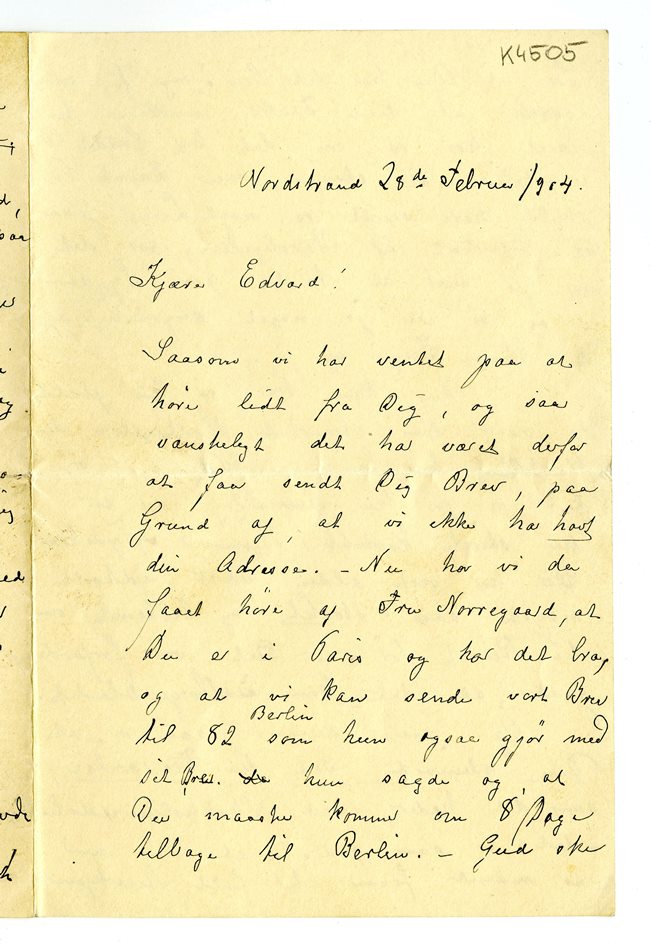 K4505
Nordstrand 28de Februar 1904.
Kjære Edvard!
Saasom vi har ventet paa at
höre lidt fra Dig, og saa
vanskeligt det har været derfor
at faa sendt Dig Brev, paa
Grund af, at vi ikke har havt
din Adresse. – Nu har vi da
faaet höre af Fru Norregaard, at
Du er i Paris og har det bra,
og at vi kan sende vort Brev
til 82 Berlin som hun ogsaa gjör med
sit Brev. hun sagde og, at
Du maaske kommer om 8 Dage
tilbage til Berlin. – Gud ske